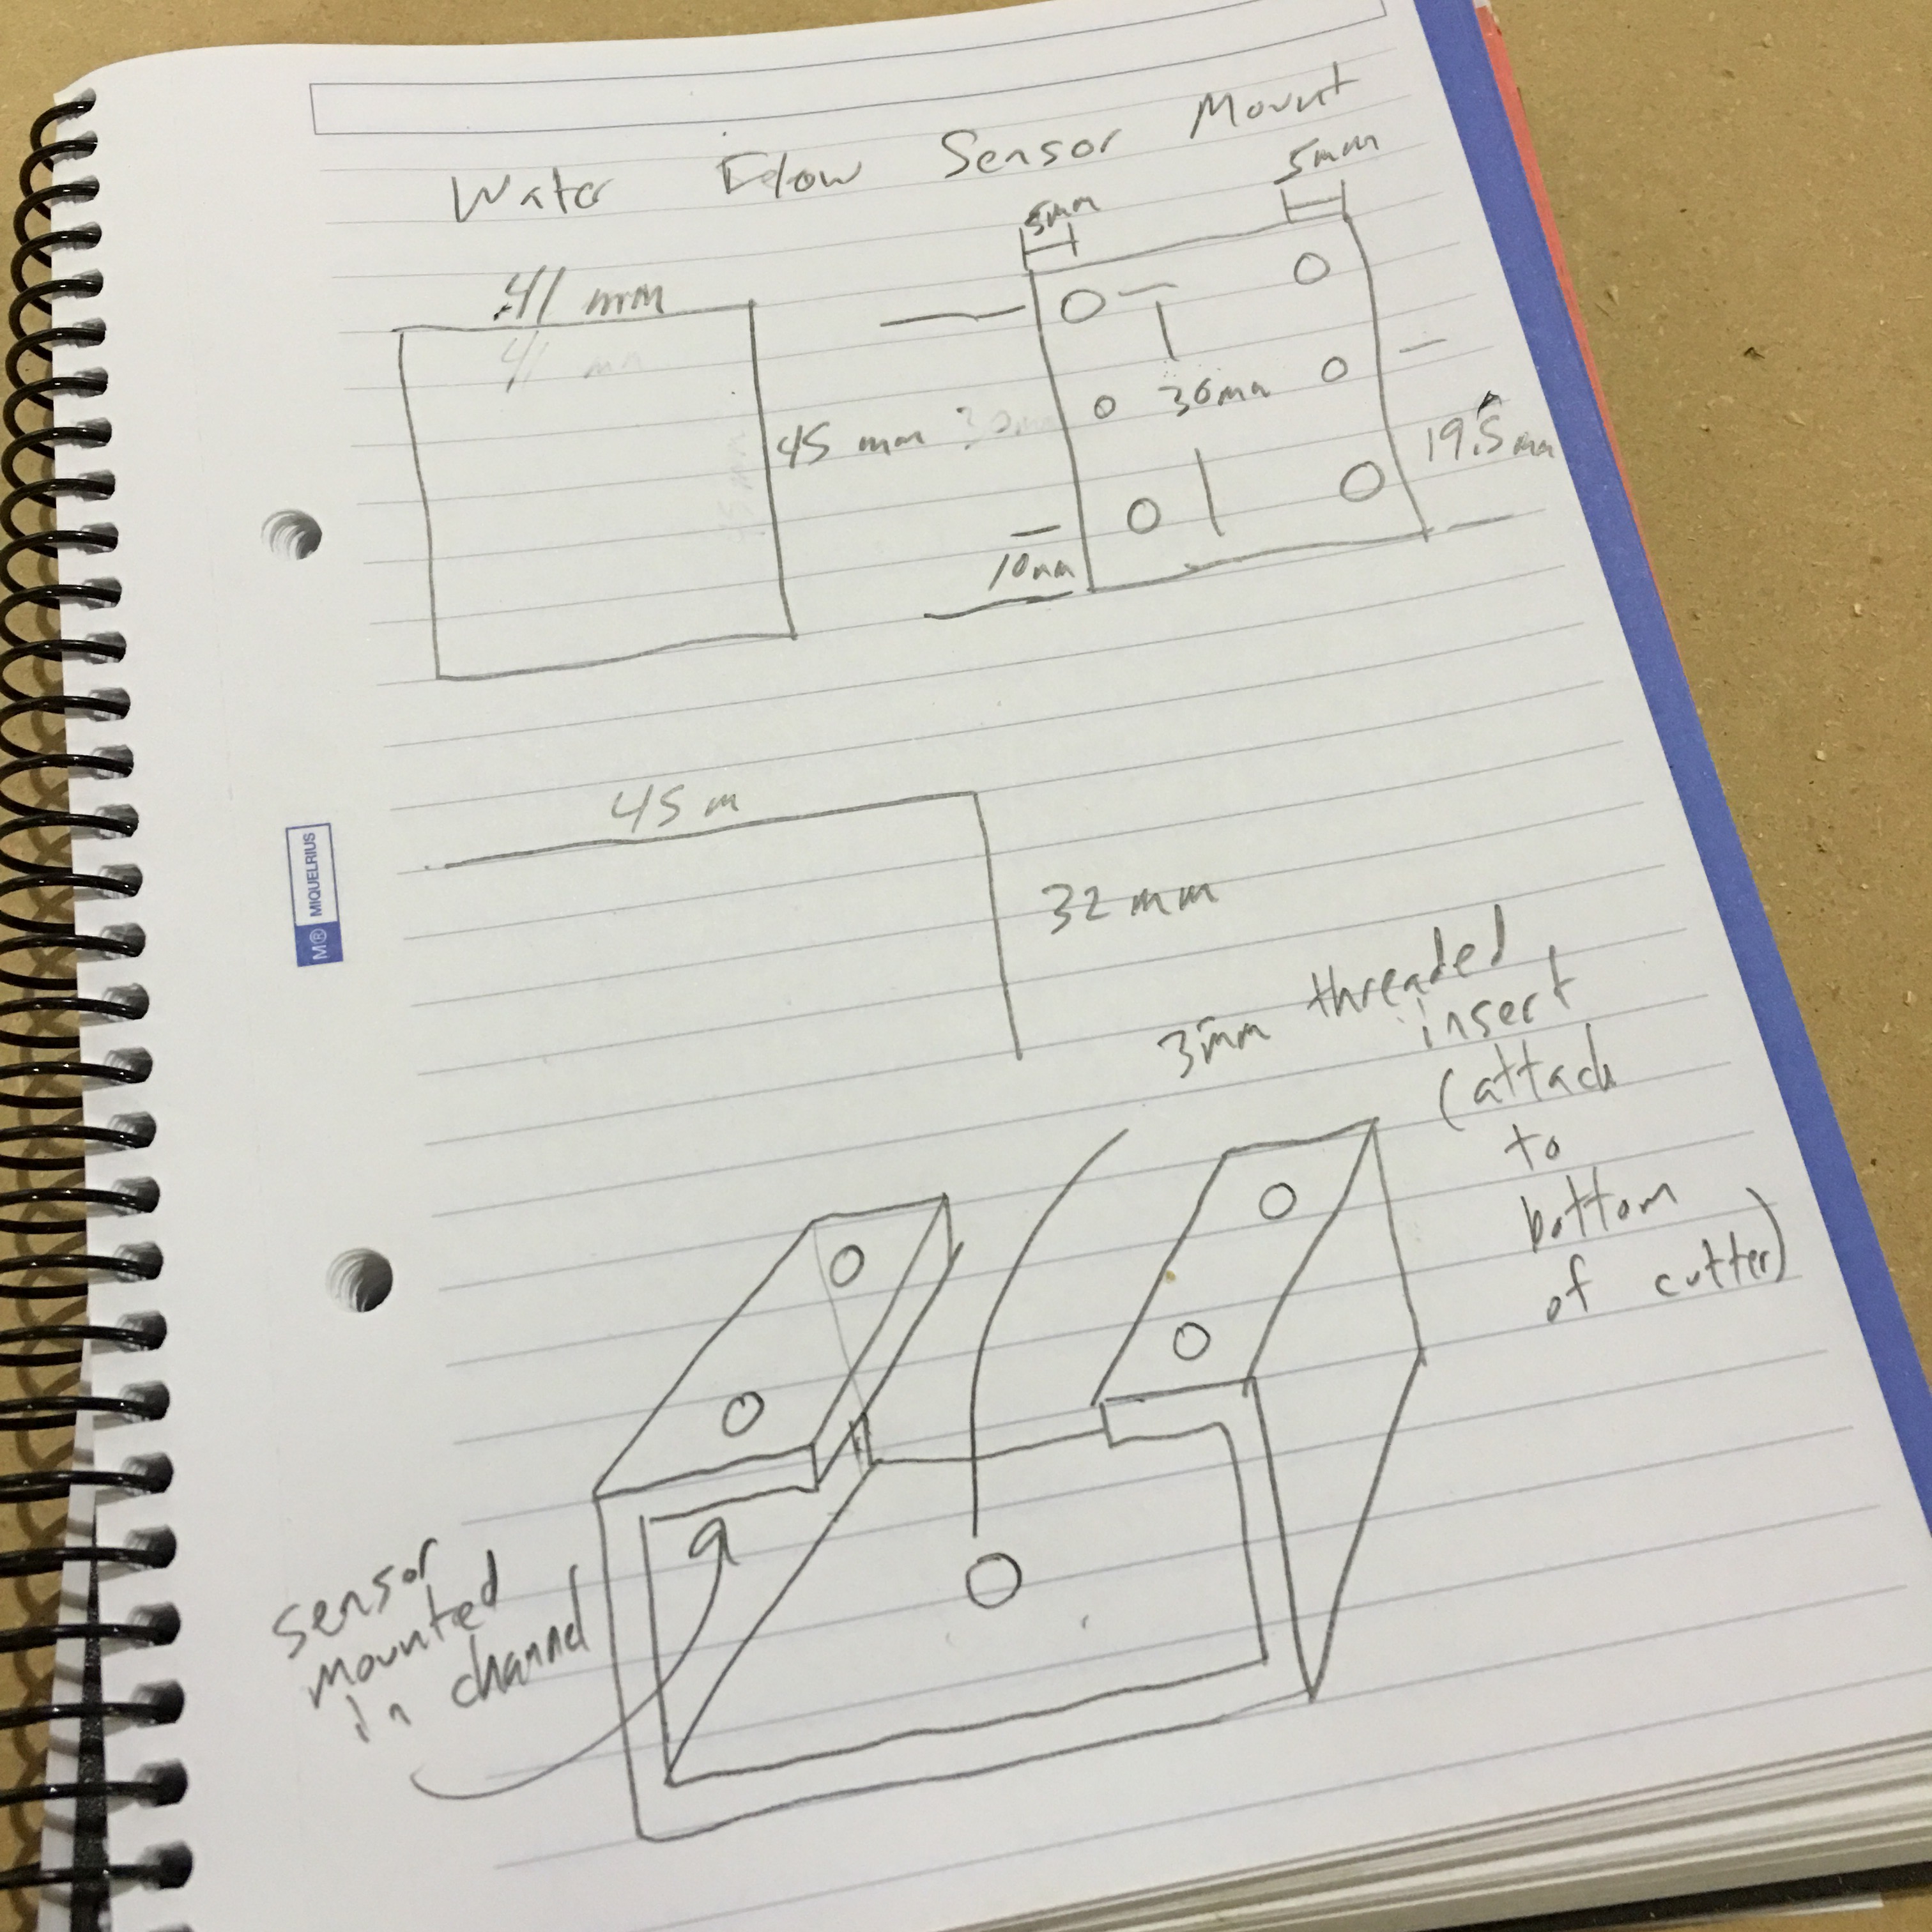 Water Flow Sensor Mount
5mm
5mm
41 mm
41 mm
45 mm
30mm
30mm
19.5mm
10mm
45 m
32 mm
3mm threaded
insert
(attach
to
bottom
of cutter)
sensor
mounted
in channel
M® MIQUELRIUS